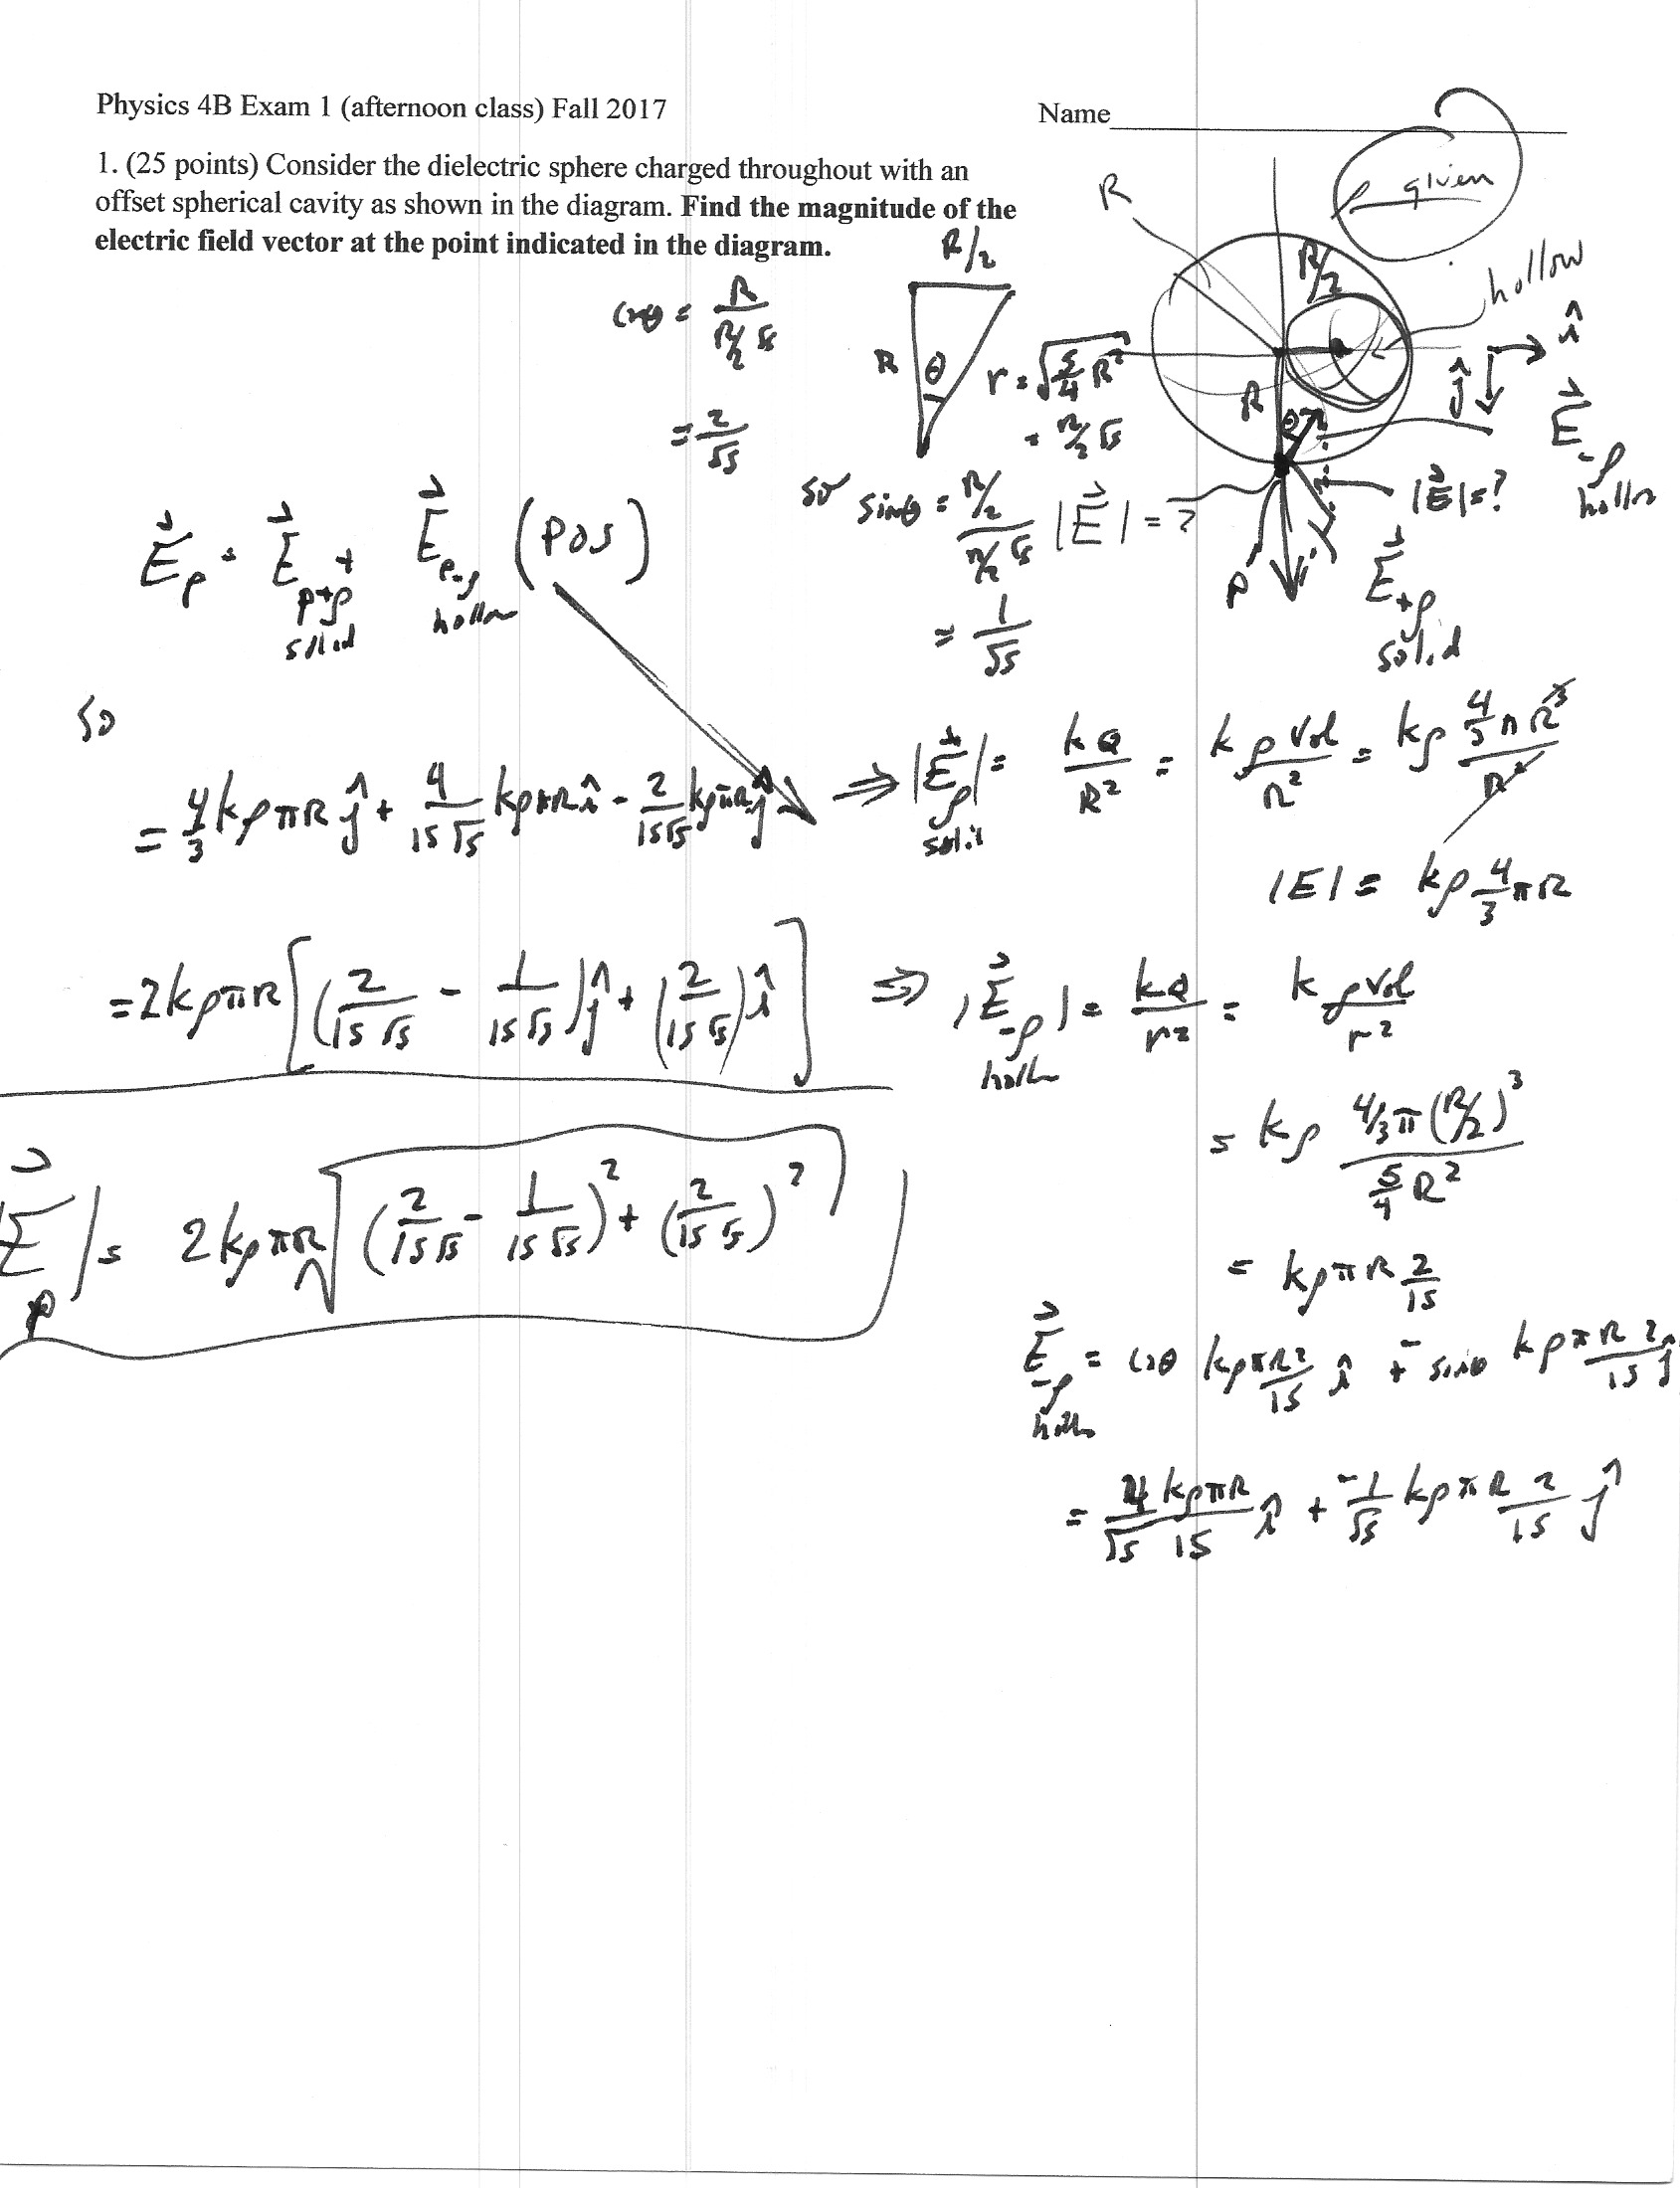 Physics 4B Exam 1 (afternoon class) Fall 2017
Name
1. (25 points) Consider the dielectric sphere charged throughout with an
offset spherical cavity as shown in the diagram. Find the magnitude of the
electric field vector at the point indicated in the diagram.
ρ given
R
R/2
hollow
î
ĵ
R
θ
E⃗ -ρ hollow
|E⃗|=?
|E⃗| = ?
P
E⃗ +ρ solid
R/2
R
θ
r = √(5/4 R²)
= R/2 √5
cosθ = R / (R/2 √5)
= 2/√5
so sinθ = (R/2) / (R/2 √5)
= 1/√5
E⃗p = E⃗ p+ρ solid + E⃗ p-ρ hollow (POS)
so
= 4/3 kρπR ĵ + 4/(15√5) kρπR î - 2/(15√5) kρπR ĵ
⇒ |E⃗ ρ solid| = kQ/R² = kρVol/R² = kρ 4/3 π R³ / R²
|E| = kρ 4/3 πR
= 2kρπR [(2/(15√5) - 1/(15√5)) ĵ + (2/(15√5)) î]
⇒ |E⃗ -ρ hollow| = kQ/r² = kρVol/r²
= kρ 4/3 π (R/2)³ / (5/4 R²)
= kρπR 2/15
|E⃗p| = 2kρπR √((2/(15√5) - 1/(15√5))² + (2/(15√5))²)
E⃗ -ρ hollow = cosθ kρπR2/15 î + - sinθ kρπR 2/15 ĵ
= 4kρπR/(√5 15) î + -1/√5 kρπR 2/15 ĵ